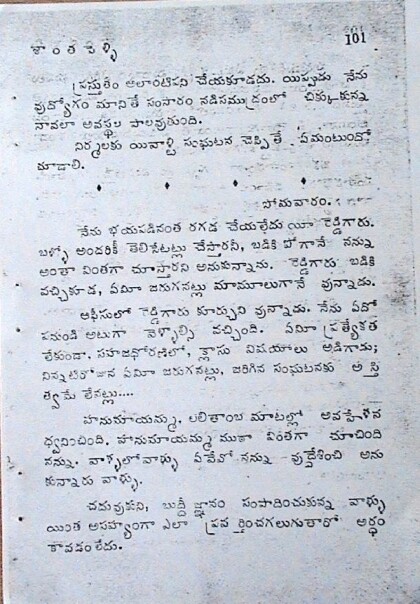 శాంత పెళ్ళి
101
ప్రస్తుతం అలాంటిపని చేయకూడదు. యిప్పుడు నేను
వుద్యోగం మానితే సంసారం నడిసముద్రంలో చిక్కుకున్న
నావలా అవస్థల పాలవుతుంది.
నిర్మలకు యివాల్టి సంఘటన చెప్పితే ఏమంటుందో
చూడాలి.
సోమవారం.
నేను భయపడినంత రగడ చేయలేదు యీ రెడ్డిగారు.
బళ్ళో అందరికీ తెలిసేటట్లు చేస్తారనీ, బడికి పోగానే నన్ను
అంతా వింతగా చూస్తారని అనుకున్నాను. రెడ్డిగారు బడికి
వచ్చికూడ, ఏమీ జరుగనట్లు మామూలుగానే వున్నాడు.
ఆఫీసులో రెడ్డిగారు కూర్చుని వున్నాడు. నేను ఏదో
పనుండి అటుగా వెళ్ళాల్సి వచ్చింది. ఏమీ ప్రత్యేకత
లేకుండా. సహజధోరణిలో, క్లాసు విషయాలు అడిగాడు;
నిన్నటిరోజున ఏమీ జరుగనట్లు, జరిగిన సంఘటనకు అస్తి
త్వమే లేనట్లు....
హనుమాయమ్మ, లలితాంబ మాటల్లో అవహేళన
ధ్వనించింది. హనుమాయమ్మ మహా వింతగా చూచింది
నన్ను. వాళ్ళలోవాళ్ళు ఏవేవో నన్ను వుద్దేశించి అను
కున్నారు వాళ్ళు.
చదువుకుని, బుద్ధీ జ్ఞానం సంపాదించుకున్న వాళ్ళు
యింత అసహ్యంగా ఎలా ప్రవర్తించగలుగుతారో అర్థం
కావడంలేదు.